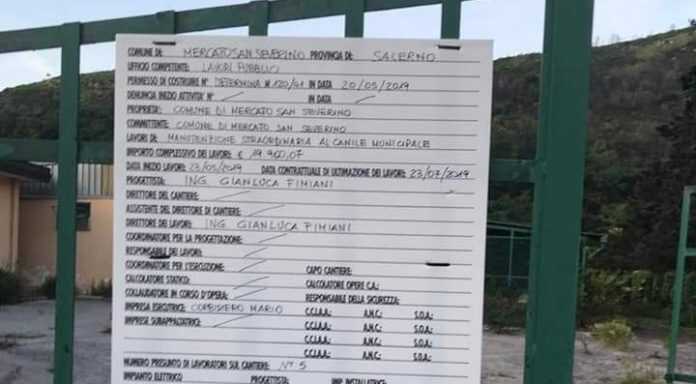 COMUNE DI: MERCATO SAN SEVERINO PROVINCIA DI: SALERNO
UFFICIO COMPETENTE: LAVORI PUBBLICO
PERMESSO DI COSTRUIRE N° DETERMINA N 120/61 IN DATA 20/05/2019
DENUNCIA INIZIO ATTIVITA' N° IN DATA
PROPRIETA': COMUNE DI MERCATO SAN SEVERINO
COMMITTENTE: COMUNE DI MERCATO SAN SEVERINO
LAVORI DI: MANUTENZIONE STRAORDINARIA AL CANILE MUNICIPALE
IMPORTO COMPLESSIVO DEI LAVORI: € 19.900,07
DATA INIZIO LAVORI: 23/05/2019 DATA CONTRATTUALE DI ULTIMAZIONE DEI LAVORI: 23/07/2019
PROGETTISTA: ING GIANLUCA FIMIANI
DIRETTORE DEL CANTIERE:
ASSISTENTE DEL DIRETTORE DI CANTIERE:
DIRETTORE DEI LAVORI: ING GIANLUCA FIMIANI
COORDINATORE PER LA PROGETTAZIONE:
RESPONSABILE DEI LAVORI:
COORDINATORE PER L'ESECUZIONE: CAPO CANTIERE:
CALCOLATORE STATICO: CALCOLATORE OPERE C.A.:
COLLAUDATORE IN CORSO D'OPERA: RESPONSABILE DELLA SICUREZZA:
IMPRESA ESECUTRICE: MARIO C.C.I.A.A.: A.N.C.: S.O.A.:
IMPRESE SUBAPPALTATRICI: C.C.I.A.A.: A.N.C.: S.O.A.:
C.C.I.A.A.: A.N.C.: S.O.A.:
C.C.I.A.A.: A.N.C.: S.O.A.:
NUMERO PRESUNTO DI LAVORATORI SUL CANTIERE: N° 5
IMPIANTO ELETTRICO PROGETTISTA: IMP. INSTALLATRICE: